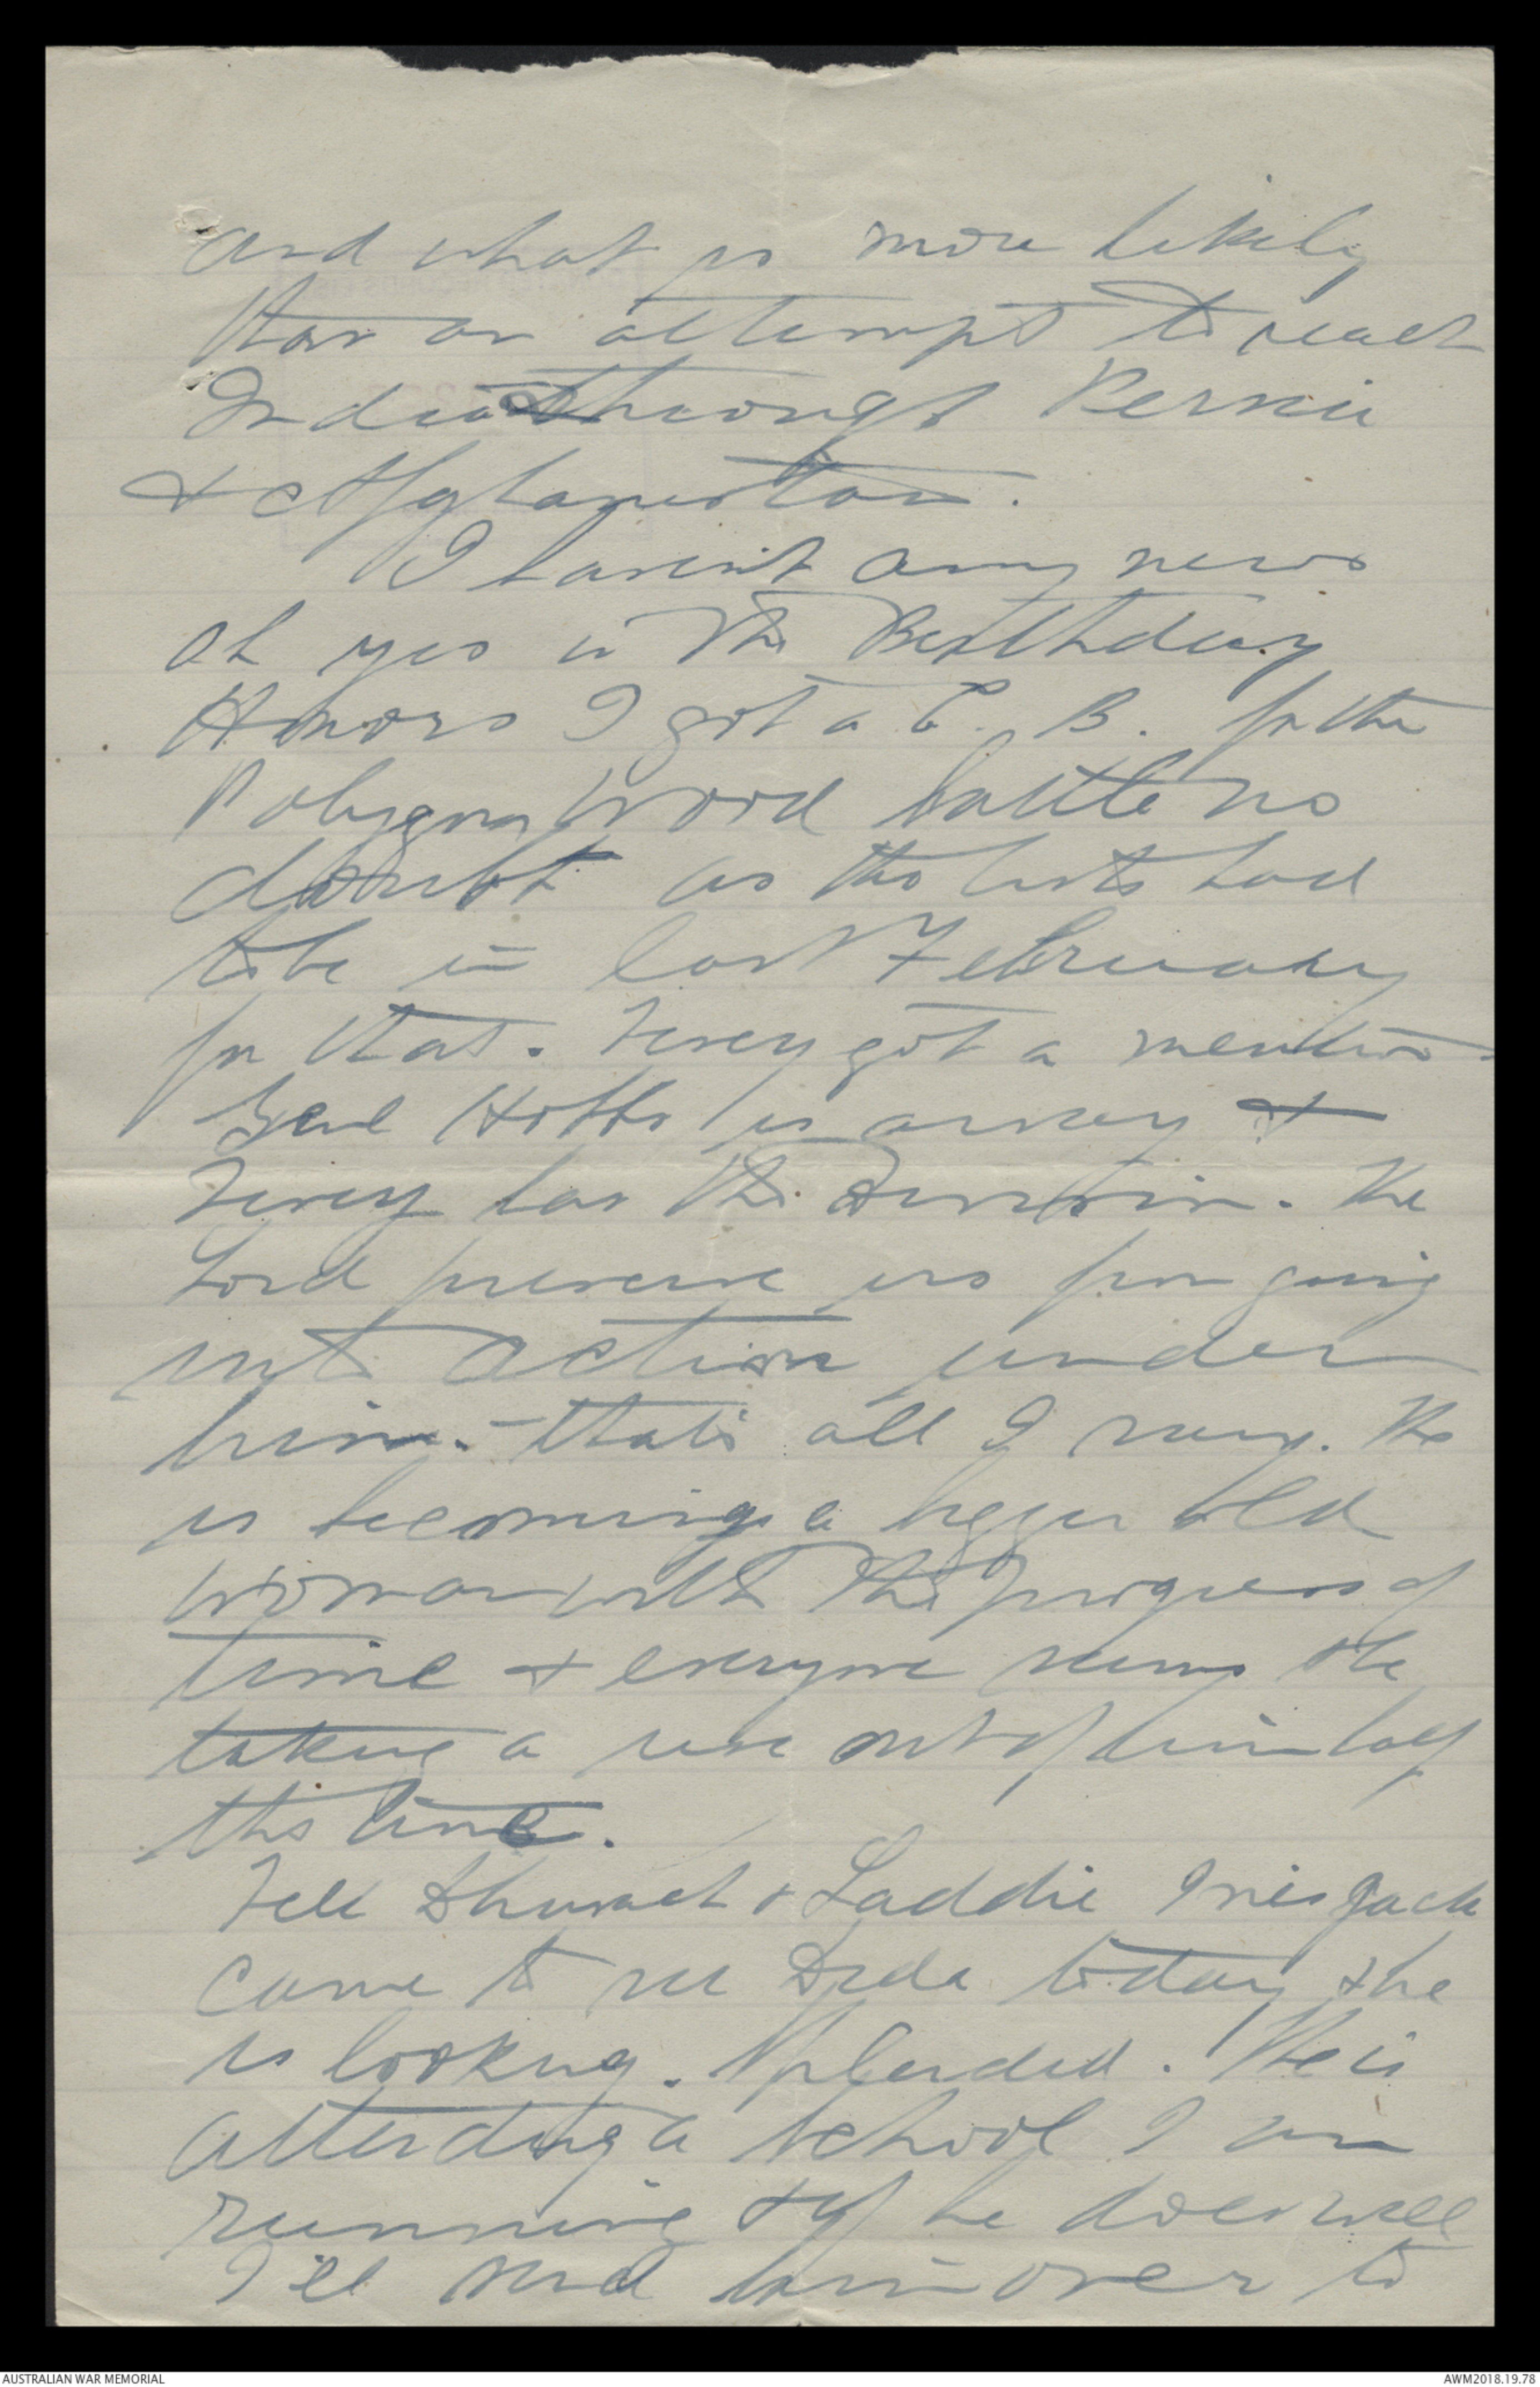 and what is more likely
than an attempt to reach
India through Persia
& Afghanistan.
I haven't any news
oh yes in the Birthday
Honors I got a C. B. for the
Polygon Wood battle no
doubt as the lists had
to be in last February
for that. Tivey got a mention
Genl Hobbs is away &
Tivey has the Division. The
Lord preserve us from going
into action under
him. - that's all I say. He
is becoming a bigger old
woman with the progress of
time & everyone seems to be
taking a rise out of him half
the time.
Tell & Laddie Jack
came to see Dida today & he
is looking splendid. He is
attending a school I am
running & if he does well
I'll send him over to
AUSTRALIAN WAR MEMORIAL
AWM2018.19.78